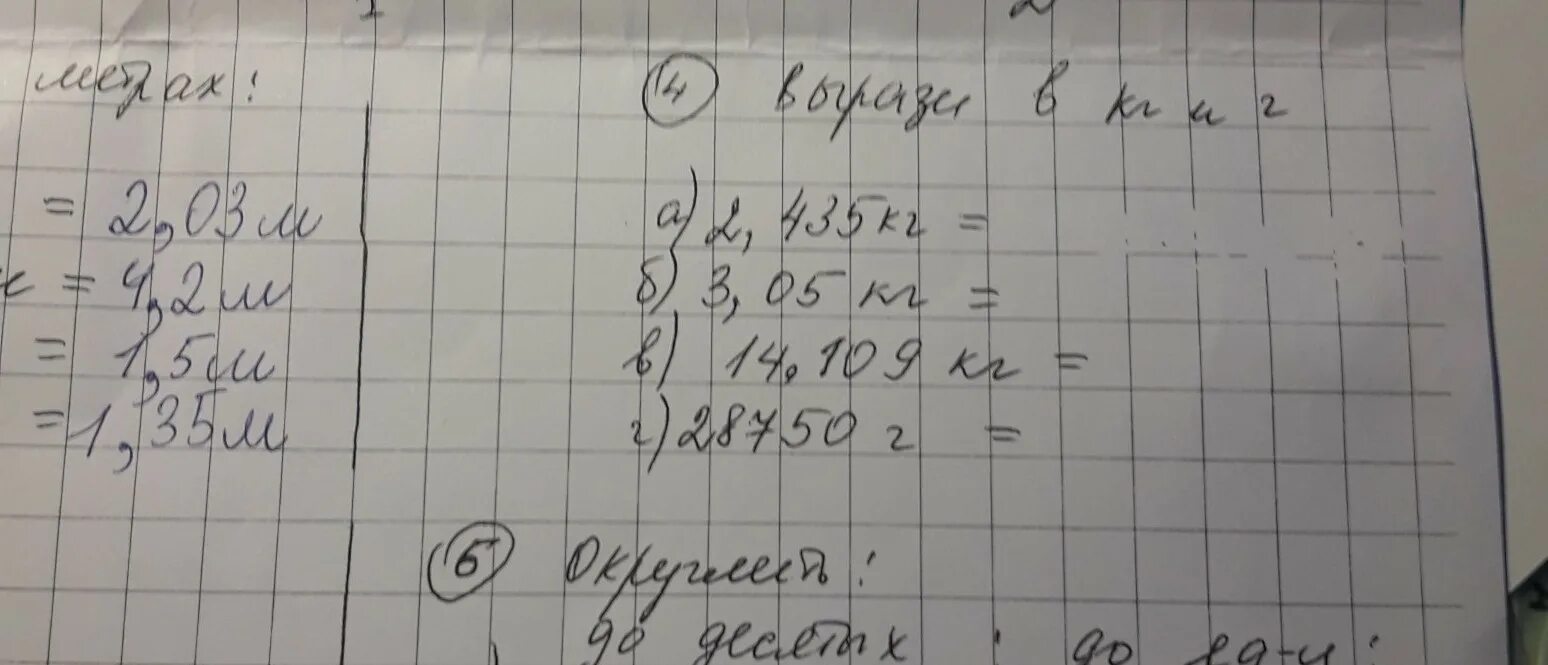 метрах:
= 2,03 м
= 4,2 м
= 1,5 м
= 1,35 м
14 вырази в кг и г
а) 2,435 кг =
б) 3,05 кг =
в) 14,109 кг =
г) 28750 г =
5 Округлить:
до десятых ; до ед-ц: